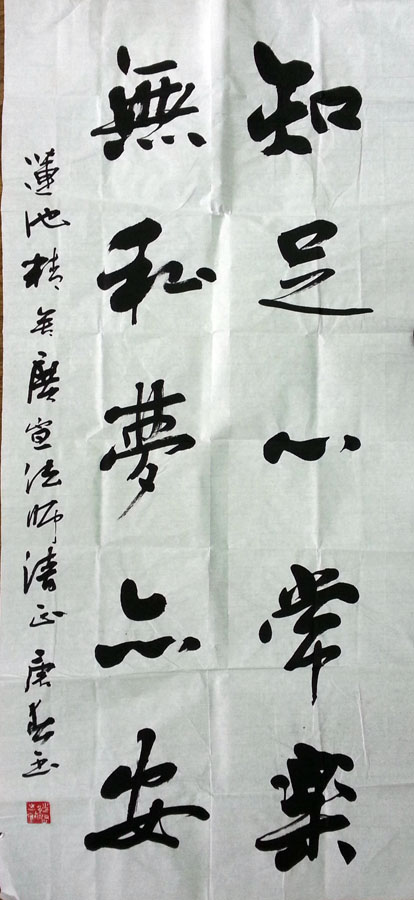 知足心常樂
無私夢亦安
蓮池精舍廣宣法師清正